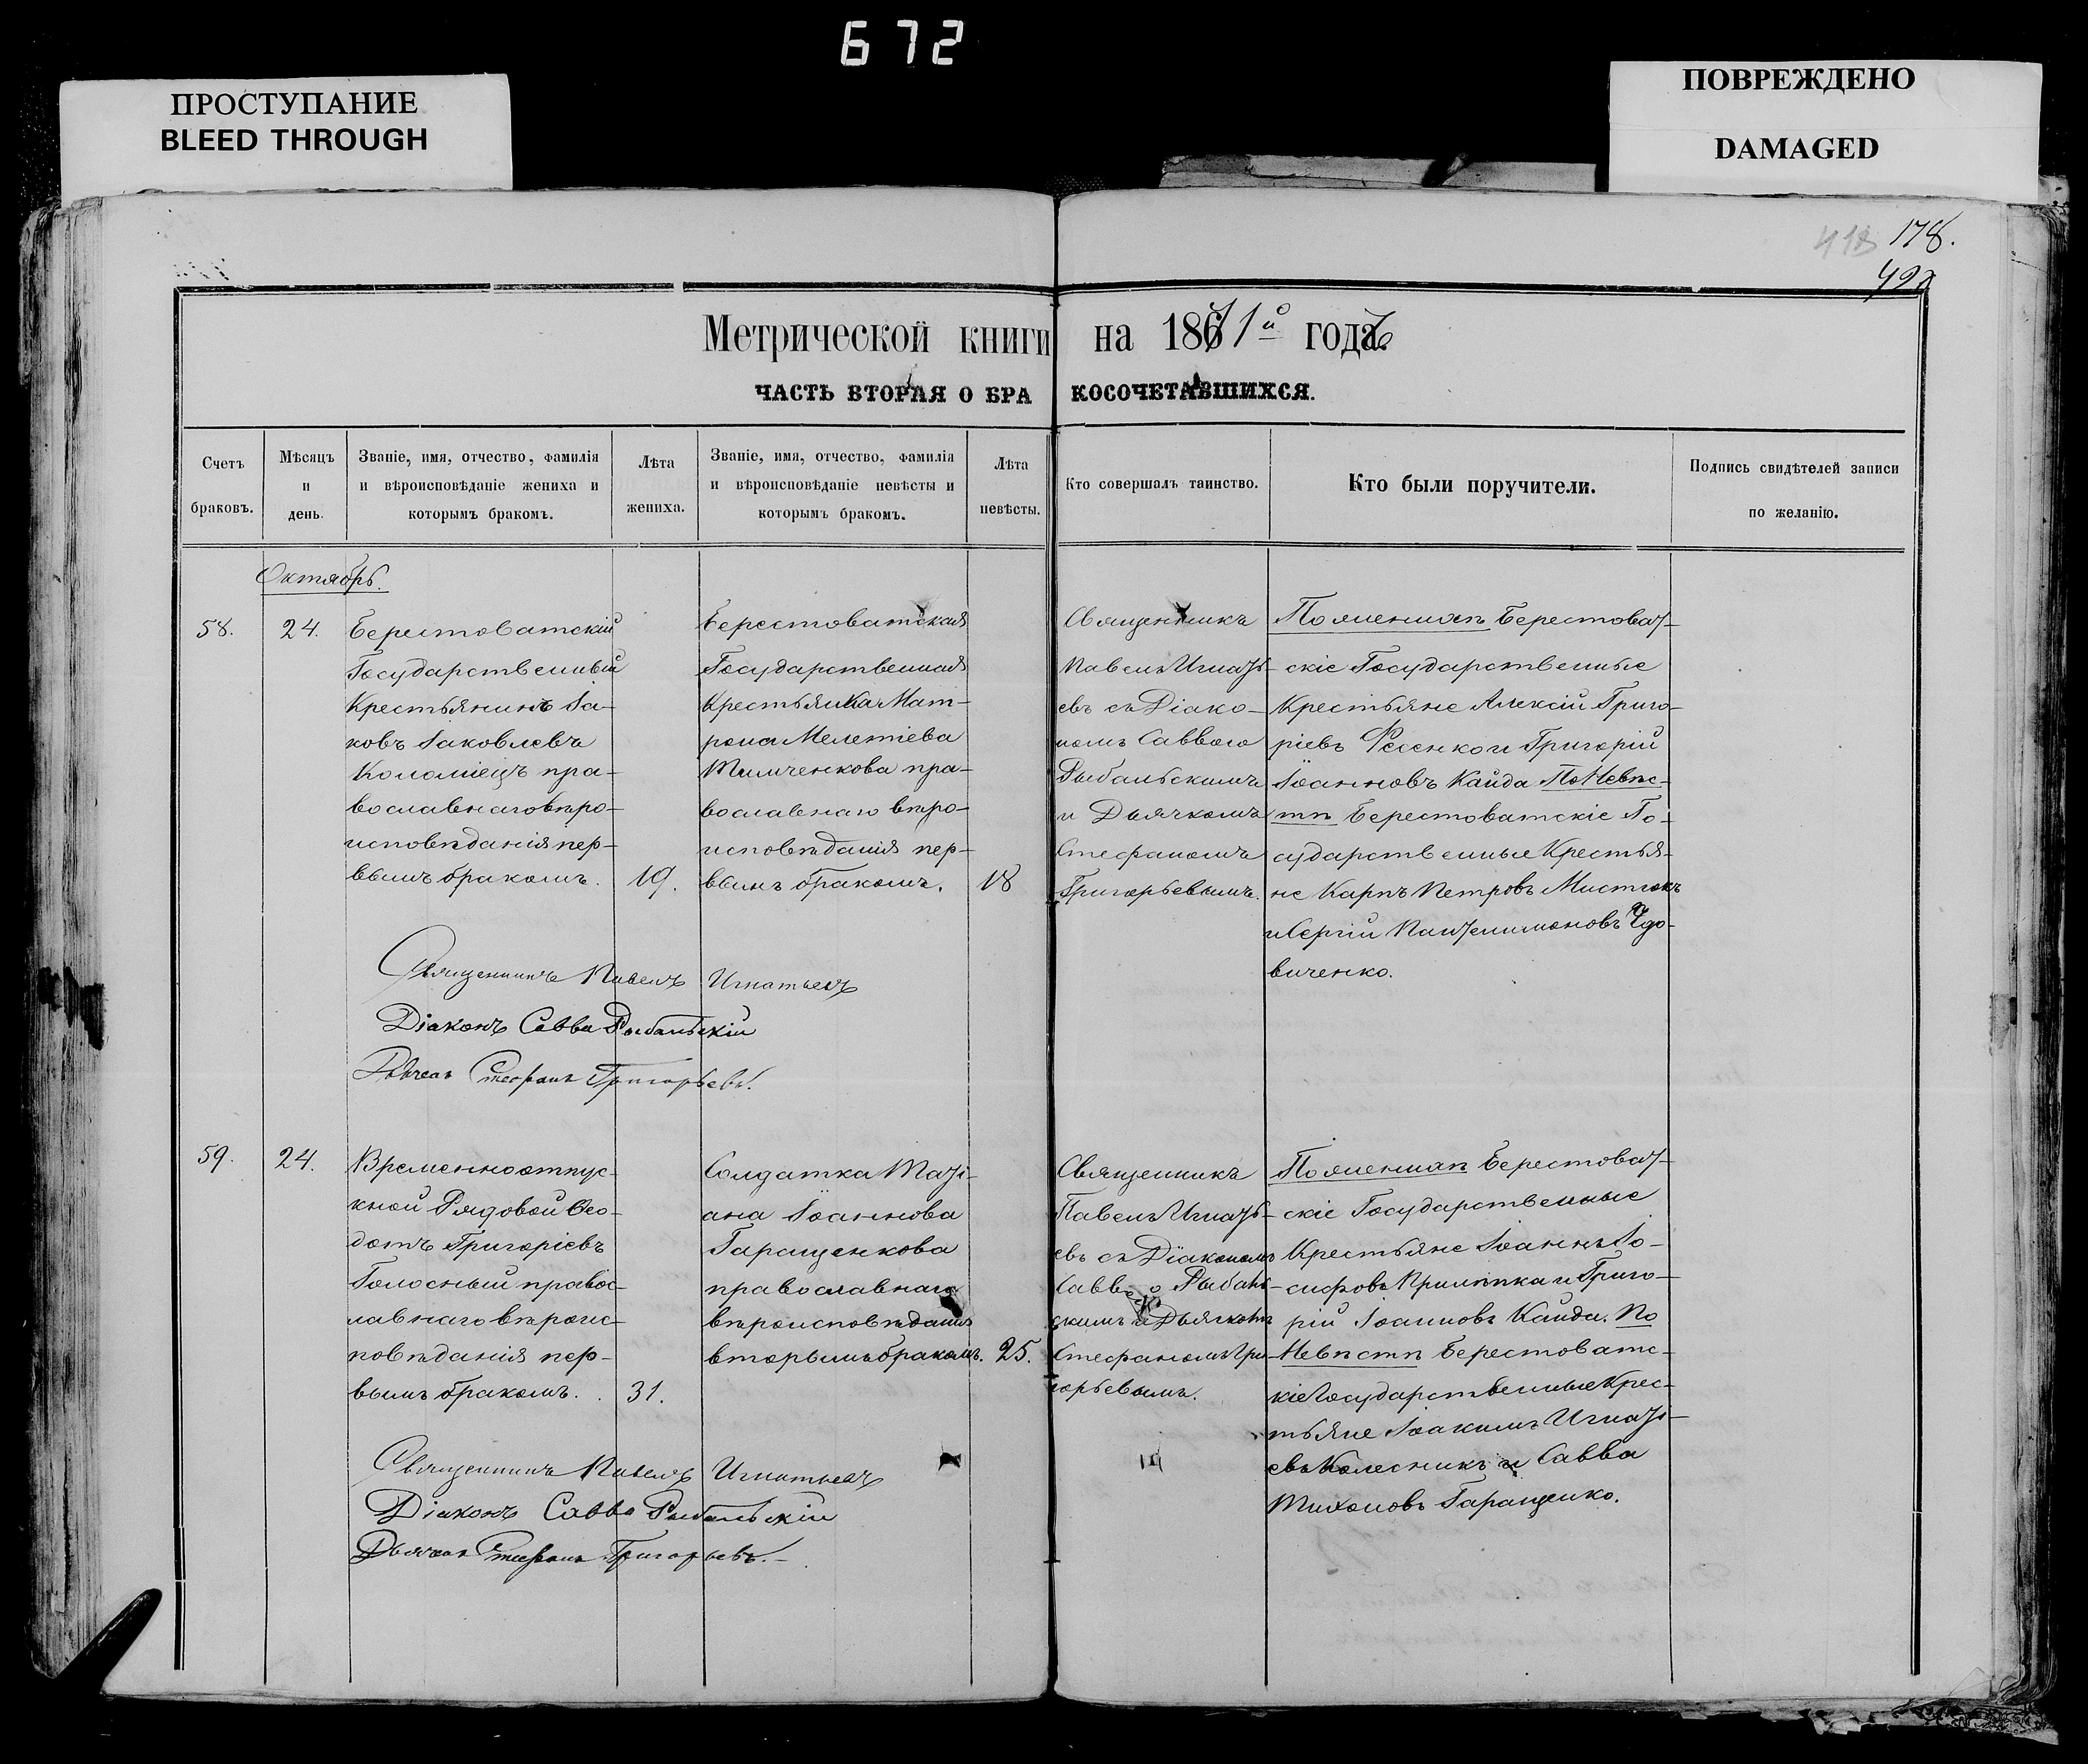 672
ПРОСТУПАНИЕ
BLEED THROUGH
ПОВРЕЖДЕНО
DAMAGED
418 178.
492
Метрической книги на 1871й годъ
ЧАСТЬ ВТОРАЯ О БРАКОСОЧЕТАВШИХСЯ.
Счетъ
браковъ.
Мѣсяцъ
и
день.
Званіе, имя, отчество, фамилія
и вѣроисповѣданіе жениха и
которымъ бракомъ.
Лѣта
жениха.
Званіе, имя, отчество, фамилія
и вѣроисповѣданіе невѣсты и
которымъ бракомъ.
Лѣта
невѣсты.
Кто совершалъ таинство.
Кто были поручители.
Подпись свидѣтелей записи
по желанію.
Октябрь.
58.
24.
Берестоватскій
Государственный
Крестьянинъ Іа-
ковъ Іаковлевъ
Коломіецъ пра-
вославнаго вѣро-
исповѣданія пер-
вымъ бракомъ.
19.
Берестоватская
Государственная
Крестьянка Мат-
рона Мелетіева
Тимченкова пра-
вославнаго вѣро-
исповѣданія пер-
вымъ бракомъ.
18
Священникъ
Павелъ Игнать-
евъ съ Діако-
номъ Саввою
Рыбальскимъ
и Дьячкомъ
Стефаномъ
Григорьевымъ.
По женихѣ Берестоват-
скіе Государственные
Крестьяне Алексій Григо-
ріевъ Фесенко и Григорій
Іоанновъ Кайда По Невѣс-
тѣ Берестоватскіе Го-
сударственные Крестья-
не Карпъ Петровъ
и Сергій Пантелимоновъ
виченко.
Священникъ Павелъ Игнатьевъ
Діаконъ Савва Рыбальскій
Дьячокъ Стефанъ Григорьевъ.
59.
24.
Временноотпус-
кной Рядовой Ѳео-
дотъ Григоріевъ
Голосный правос-
лавнаго вѣроис-
повѣданія пер-
вымъ бракомъ.
31.
Солдатка Таті-
ана Іоаннова
Гаращенкова
православнаго
вѣроисповѣданія
вторымъ бракомъ.
25.
Священникъ
Павелъ Игнать-
евъ съ Діакономъ
Саввою Рыбаль-
скимъ и Дьячкомъ
Стефаномъ Гри-
горьевымъ.
По женихѣ Берестоват-
скіе Государственные
Крестьяне Іоаннъ Іо-
сифовъ Прилѣпка и Григо-
рій Іоанновъ Кайда. По
Невѣстѣ Берестоватс-
кіе Государственные Крес-
тьяне Іоакимъ Игнаті-
евъ Колесникъ и Савва
Тихоновъ Гаращенко.
Священникъ Павелъ Игнатьевъ
Діаконъ Савва Рыбальскій
Дьячокъ Стефанъ Григорьевъ.